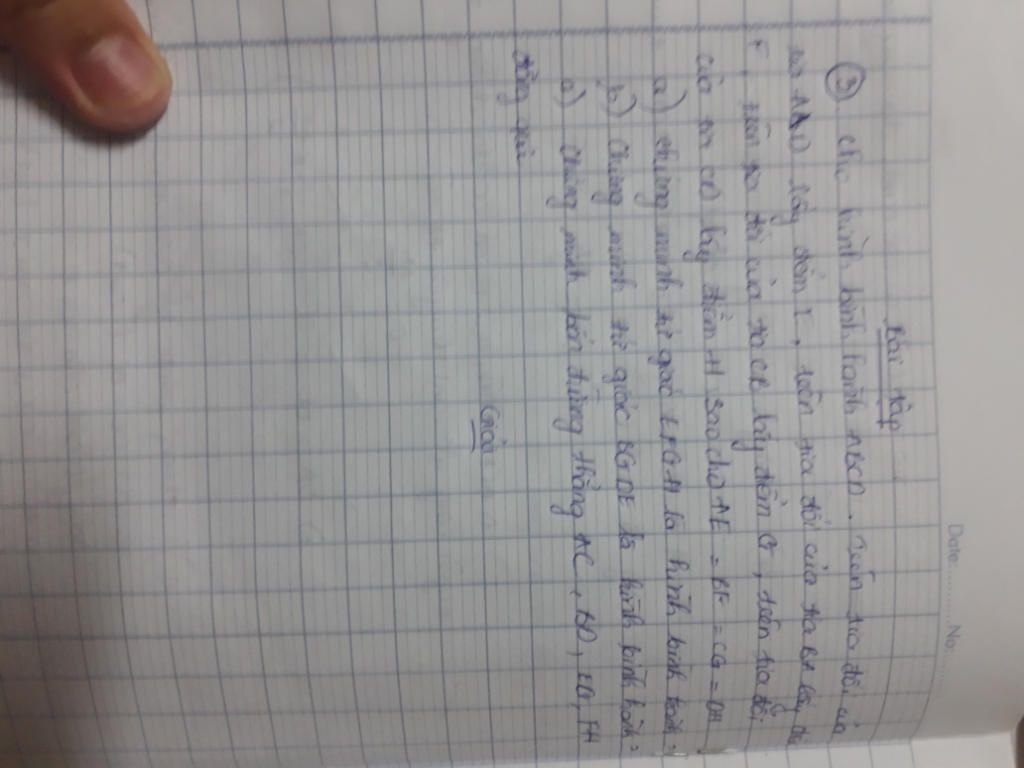 Date: No:
Bài tập
③ Cho hình bình hành ABCD. Trên tia đối của
tia AD lấy điểm E, trên tia đối của tia BA lấy
F, trên tia đối của tia CB lấy điểm G, trên tia đối
của tia CD lấy điểm H sao cho AE = BF = CG = DH
a) chứng minh tứ giác EFGH là hình bình hành
b) Chứng minh tứ giác BGDE là hình bình hành
c) Chứng minh bốn đường thẳng AC, BD, EG, FH
đồng qui
Giải